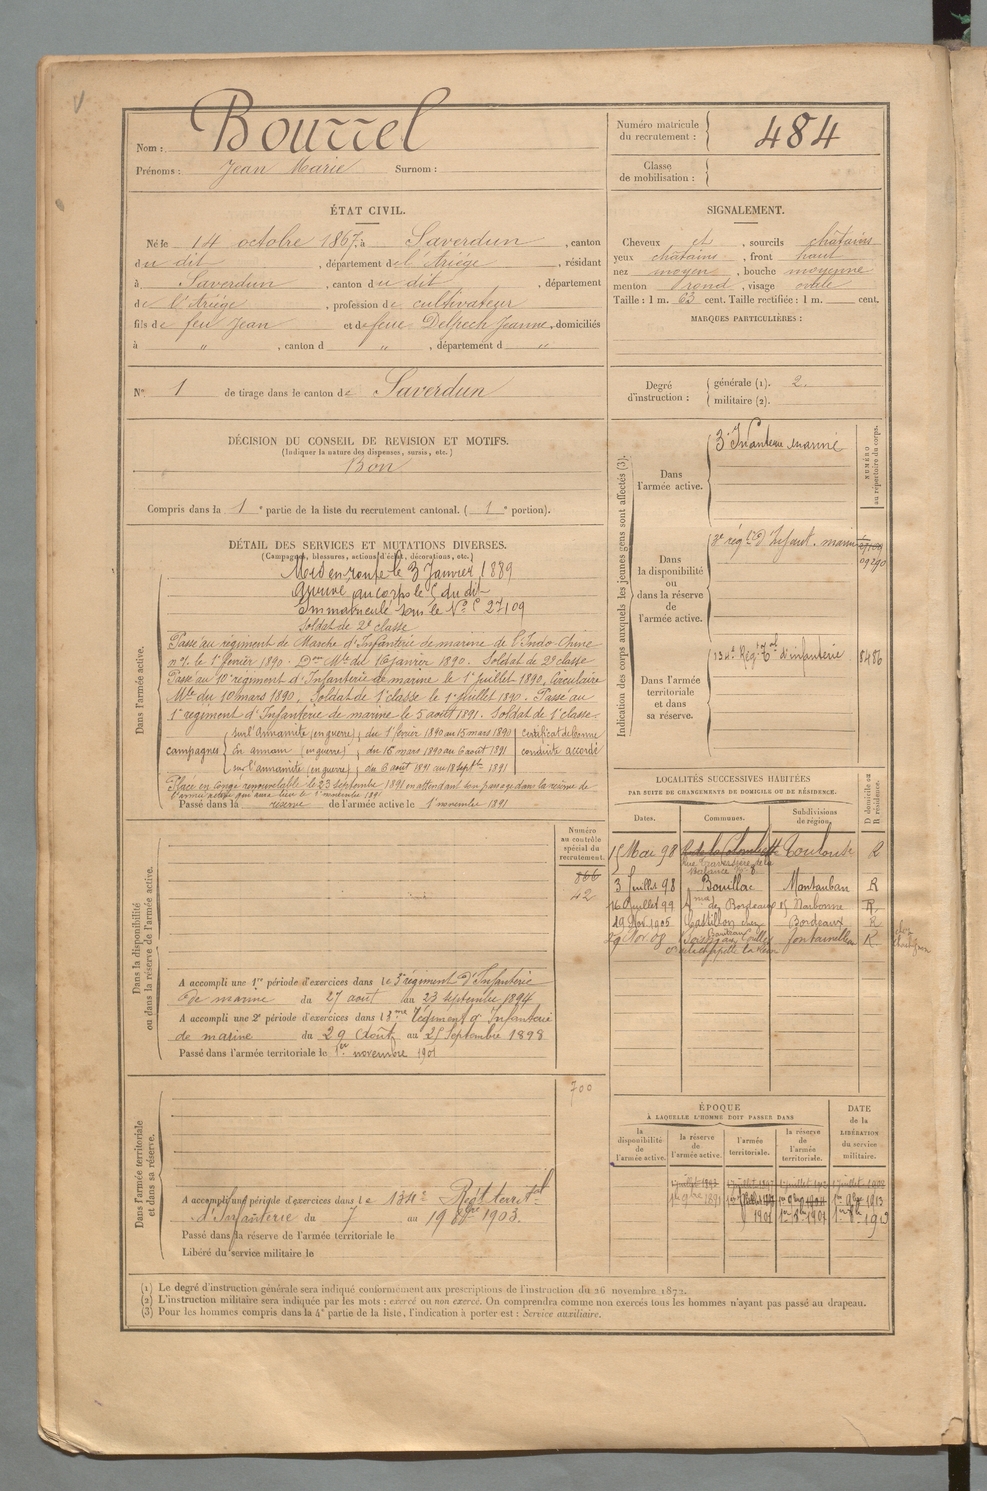 Nom : Bourrel
Prénoms : Jean Marie Surnom :
Numéro matricule du recrutement : 484
Classe de mobilisation :
ÉTAT CIVIL.
Né le 14 octobre 1867, à Saverdun, canton
du dit, département de l'Ariége, résidant
à Saverdun, canton du dit, département
de l'Ariége, profession de cultivateur
fils de feu Jean et de feue Delpech Jeanne, domiciliés
à ", canton d ", département d "
N° 1 de tirage dans le canton de Saverdun
SIGNALEMENT.
Cheveux et, sourcils châtains
yeux châtains, front haut
nez moyen, bouche moyenne
menton rond, visage ovale
Taille : 1 m. 63 cent. Taille rectifiée : 1 m. cent.
MARQUES PARTICULIÈRES :
Degré d'instruction : générale (1). 2.
militaire (2).
DÉCISION DU CONSEIL DE REVISION ET MOTIFS.
(Indiquer la nature des dispenses, sursis, etc.)
Bon
Compris dans la 1e partie de la liste du recrutement cantonal. (1e portion).
DÉTAIL DES SERVICES ET MUTATIONS DIVERSES.
(Campagnes, blessures, actions d'éclat, décorations, etc.)
Dans l'armée active.
Mis en route le 3 Janvier 1889
Arrivé au corps le 5 du dit
Immatriculé sous le N° 27109
Soldat de 2e classe
Passé au régiment de Marche d'Infanterie de marine de l'Indo-Chine
n° 1. le 1er février 1890. Don Mlle du 16 janvier 1890. Soldat de 2e classe
Passé au 10e régiment d'Infanterie de marine le 1er juillet 1890, Circulaire
Mlle du 10 mars 1890. Soldat de 1e classe le 1er juillet 1890. Passé au
1er régiment d'Infanterie de marine le 5 août 1891. Soldat de 1e classe
campagnes
sur l'Annamite (en guerre) du 1er février 1890 au 15 mars 1890
En annam (en guerre) du 16 mars 1890 au 6 août 1891
sur l'annamite (en guerre) du 6 août 1891 au 18 septbre 1891
Certificat de bonne conduite accordé
Placé en congé renouvelable le 23 septembre 1891 en attendant son passage dans la réserve de
l'armée active qui aura lieu le 1er novembre 1891
Passé dans la réserve de l'armée active le 1er novembre 1891
Indication des corps auxquels les jeunes gens sont affectés (3).
NUMÉRO au répertoire du corps.
Dans l'armée active.
3e Infanterie marine
Dans la disponibilité ou dans la réserve de l'armée active.
3e régt d'Infant. marine
09290
Dans l'armée territoriale et dans sa réserve.
134e Régt Tal d'infanterie 8486
Dans la disponibilité ou dans la réserve de l'armée active.
Numéro au contrôle spécial du recrutement.
866
42
A accompli une 1re période d'exercices dans le 3e régiment d'Infanterie
de marine du 27 août au 23 septembre 1894
A accompli une 2e période d'exercices dans le 3me régiment d'Infanterie
de marine du 29 Août au 25 septembre 1898
Passé dans l'armée territoriale le 1er novembre 1901
LOCALITÉS SUCCESSIVES HABITÉES
PAR SUITE DE CHANGEMENTS DE DOMICILE OU DE RÉSIDENCE.
Dates. Communes. Subdivisions de région. D domicile ou R résidence.
15 Mai 98 R. de la Colombette Toulouse R
Rue Traversière de la Balance N° 8
3 Juillet 98 Bouillac Montauban R
16 Juillet 99 de Bordeaux Narbonne R
19 Nov. 1905 Castillon Bordeaux R
29 Nov. 08 Fontainebleau R
Dans l'armée territoriale et dans sa réserve.
700
A accompli une période d'exercices dans le 134e Régt territal
d'Infanterie du 7 au 19 1903.
Passé dans la réserve de l'armée territoriale le
Libéré du service militaire le
ÉPOQUE
À LAQUELLE L'HOMME DOIT PASSER DANS
la disponibilité de l'armée active. la réserve de l'armée active. l'armée territoriale. la réserve de l'armée territoriale. DATE de la LIBÉRATION du service militaire.
1er 9bre 1891
1901
(1) Le degré d'instruction générale sera indiqué conformément aux prescriptions de l'instruction du 26 novembre 1872.
(2) L'instruction militaire sera indiquée par les mots : exercé ou non exercé. On comprendra comme non exercés tous les hommes n'ayant pas passé au drapeau.
(3) Pour les hommes compris dans la 4e partie de la liste, l'indication à porter est : Service auxiliaire.